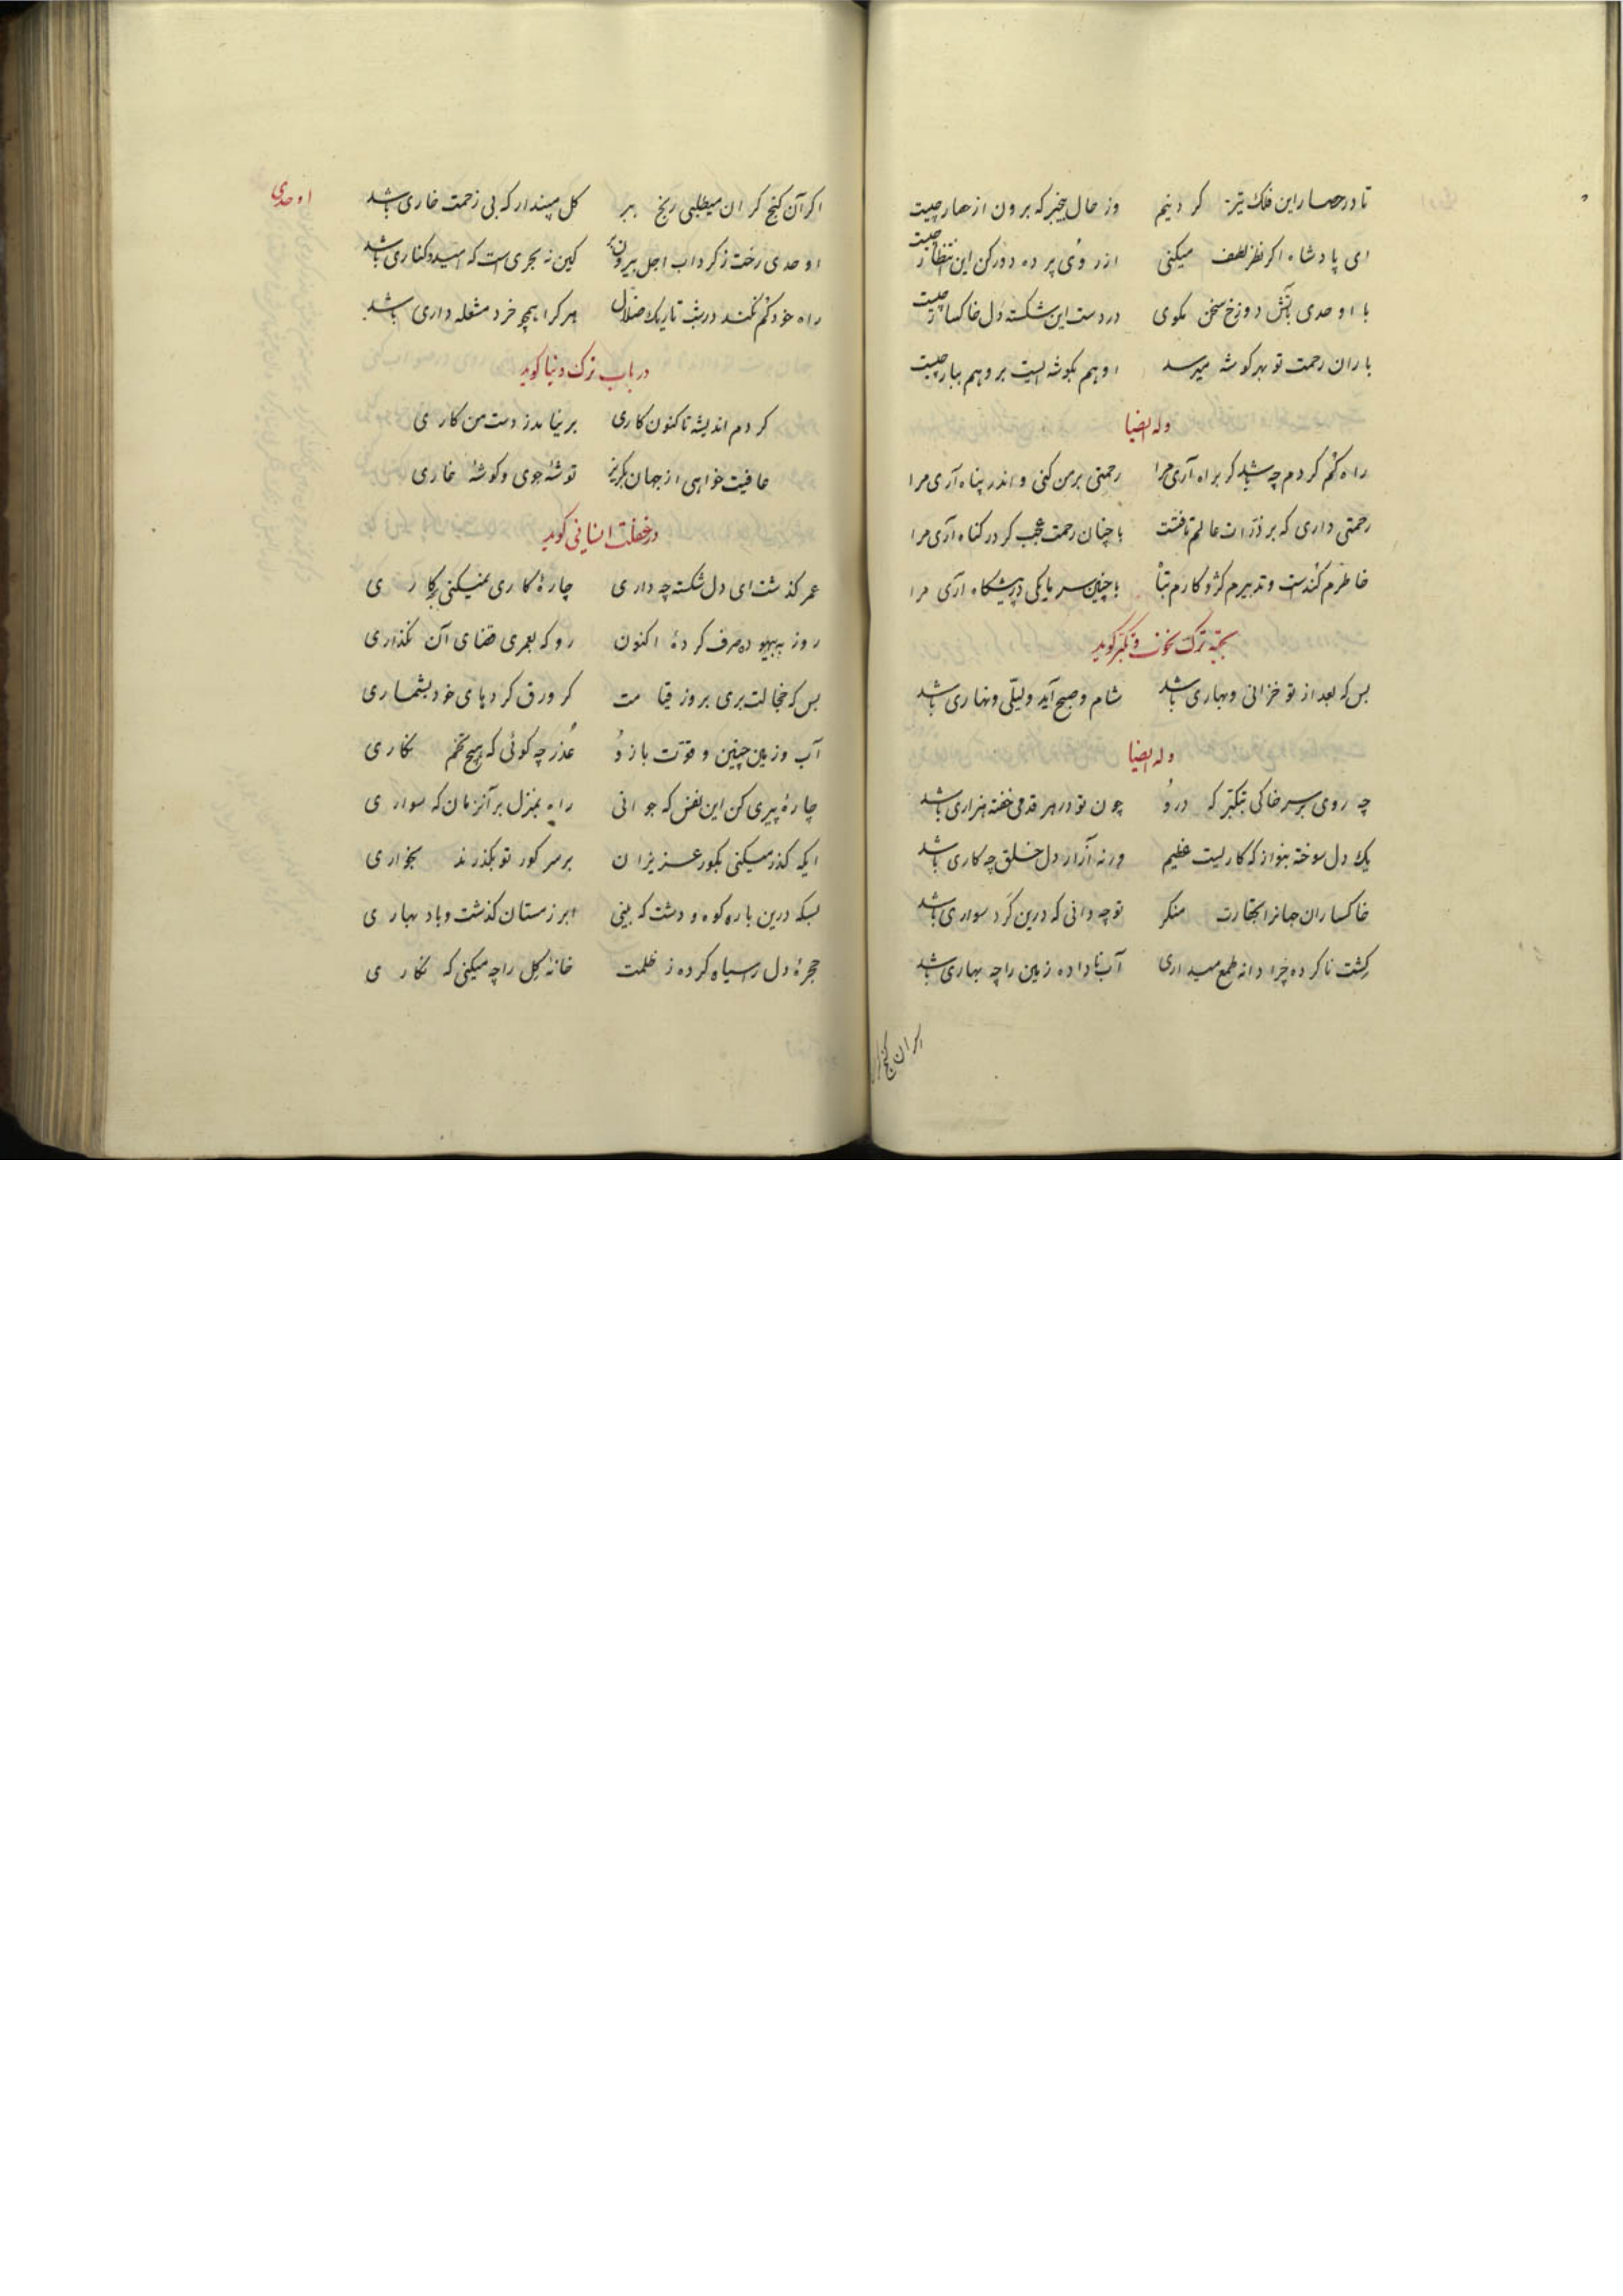 تا در حصار این فلک تیز گردنیم وز حال بیخبر که برون از حصار چیست
ای پادشاه اگر نظر لطف میکنی از روی پرده دور کن این انتظار چیست
با اوحدی بآتش دوزخ سخن مگوی در دست این شکسته دل خاکسار چیست
باران رحمت تو بهر گوشه میرسد او هم بگوشه ایست برو هم ببار چیست
وله ایضا
راه گم کردم چه باشد گر براه آری مرا رحمتی بر من کنی و اندر پناه آری مرا
رحمتی داری که بر ذرات عالم تافتست با چنان رحمت عجب گر در گناه آری مرا
خاطرم کندست و تدبیرم کژ و کارم تباه با چنین سرمایگی در پیشگاه آری مرا
بجهة ترک نخوت و تکبر گوید
بس که بعد از تو خزانی و بهاری باشد شام و صبح آید و لیلی و نهاری باشد
وله ایضا
چه روی بر سر خاکی بتکبر که درو چون تو در هر قدمی خفته هزاری باشد
یک دل سوخته بنواز که کاریست عظیم ورنه آزار دل خلق چه کاری باشد
خاکساران جهانرا بحقارت منگر تو چه دانی که درین گرد سواری باشد
کشت ناکرده چرا دانه طمع میداری آب ناداده زمین را چه بهاری باشد
اگر آن گنج گران
اوحدی
اگر آن گنج گران میطلبی رنج ببر گل مپندار که بی زحمت خاری باشد
اوحدی رخت ز گرداب اجل بیرون بر کین نه بحری است که امید کناری باشد
راه خود گم نکند در شب تاریک ضلال هر کرا همچو خرد مشعله داری باشد
در باب ترک دنیا گوید
کردم اندیشه تا کنون کاری بر نیامد ز دست من کاری
عافیت خواهی از جهان بگریز توشهٔ جوی و گوشهٔ غاری
در غفلت انسانی گوید
عمر گذشت ای دل شکسته چه داری چارهٔ کاری نمیکنی بچه کاری
روز ببیهوده صرف کردهٔ اکنون رو که بعمری قضای آن نگذاری
بس که خجالت بری بروز قیامت گر ورق کردهای خود بشماری
آب و زمین چنین و قوت بازو عذر چه گوئی که هیچ تخم نکاری
چارهٔ پیری کن این نفس که جوانی راه بمنزل بر آنزمان که سواری
ایکه گذر میکنی بگور عزیزان بر سر گور تو بگذرند بخواری
بسکه درین باره کوه و دشت که بینی ابر زمستان گذشت و باد بهاری
حجرهٔ دل را سیاه کرده ز ظلمت خانهٔ گل را چه میکنی که نگاری